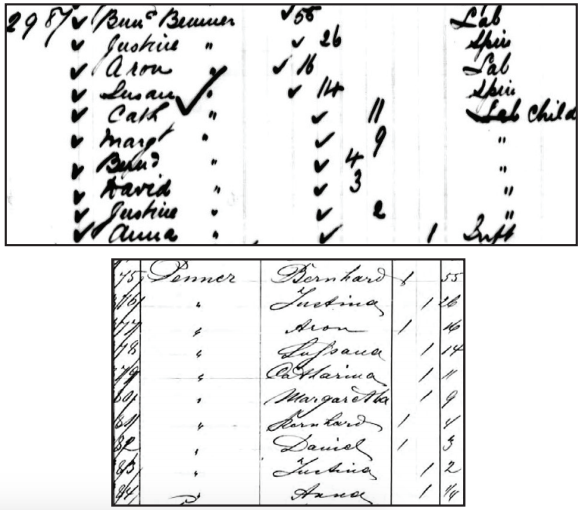 2987 ✓ Bern^d Brenner ✓ 55 Lab
✓ Justine " ✓ 26 Spin
✓ Aron " ✓ 16 Lab
✓ Susan " ✓ 14 Spin
✓ Cath " ✓ 11 Lab Child
✓ Margt " ✓ 9 "
✓ Bernd " ✓ 4 "
✓ David " ✓ 3 "
✓ Justine " ✓ 2 "
✓ Anna " ✓ 1 Inft
75 Penner Bernhard 1 55
76 " Justina 1 26
77 " Aron 1 16
78 " Sußana 1 14
79 " Catharina 1 11
80 " Margaretha 1 9
81 " Bernhard 1 4
82 " Daniel 1 3
83 " Justina 1 2
84 " Anna 1 1/4